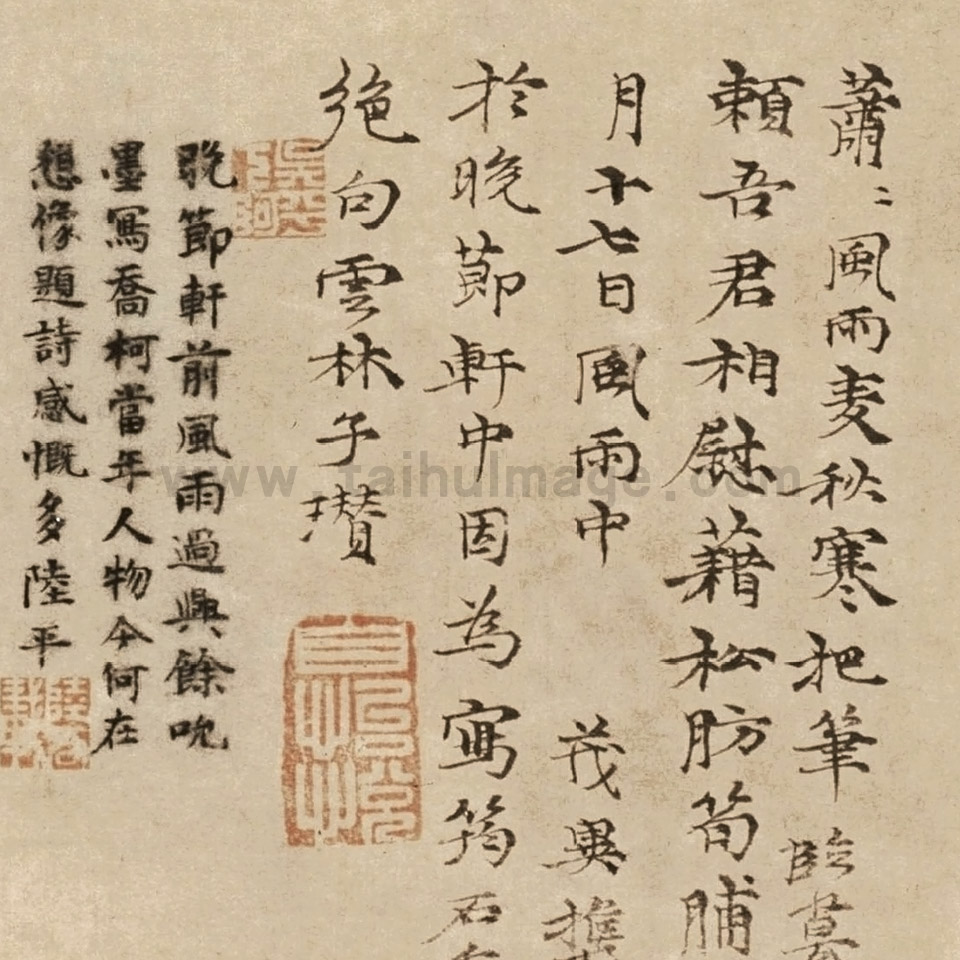 蕭〻風雨麦秋寒把筆臨摹
頼吾君相慰藉松肪筍脯
月十七日風雨中 茂異携
於晚莭軒中因為寫筠石
絶句雲林子瓚
晚節軒前風雨過興餘吮
墨寫喬柯當年人物今何在
想像題詩感慨多陸平
www.taihuImage.com